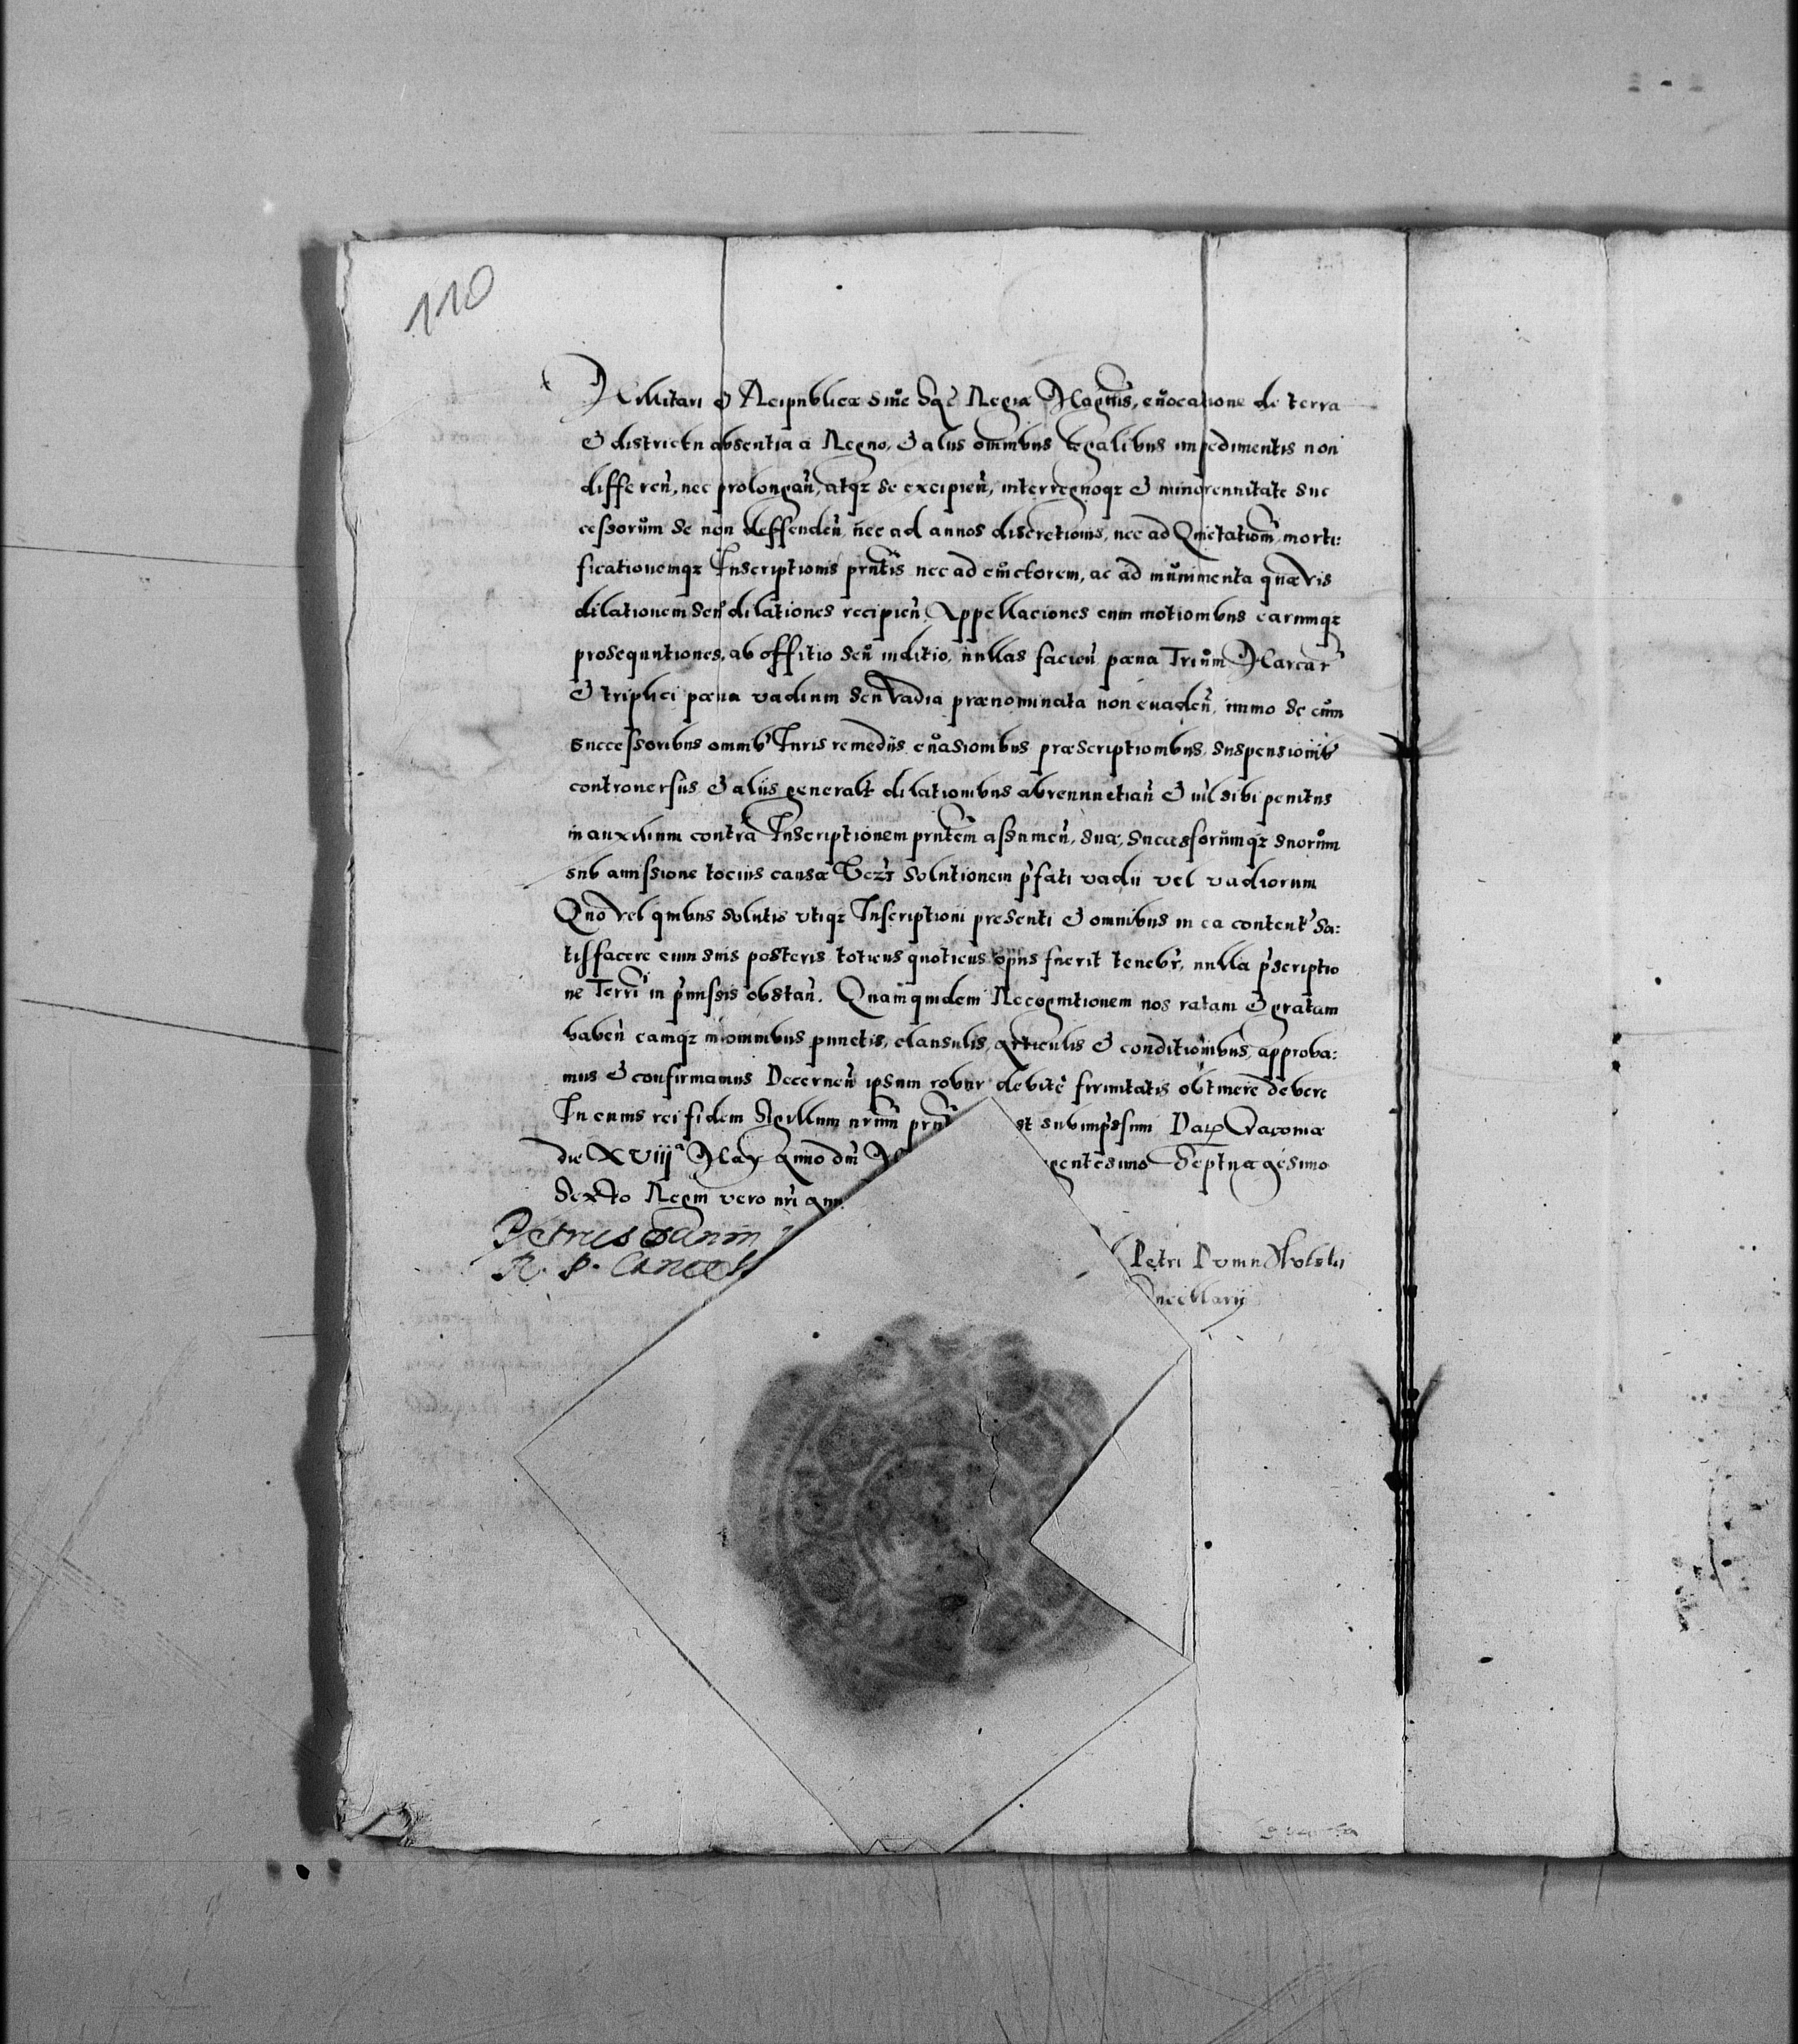 110
Militari & Reipublicæ sive Sac Regiæ Magtis, evocatione de terra
& districtu absentia a Regno, & aliis omnibus legalibus impedimentis non
differeñ, nec prolongañ, atqz se excipieñ, interregnoqz & minorennitate suc
cessorum se non deffendeñ, nec ad annos discretionis, nec ad Quietationem morti:
ficationemqz Inscriptionis pntis nec ad evictorem, ac ad munimenta quævis
dilationem seu dilationes recipieñ, Appellaciones cum motionibus earumqz
prosequutiones, ab offitio seu iuditio, nullas facieñ pæna Trium Marcar
& triplici pæna vadium seu vadia prænominata non evadeñ, immo se cum
successoribus omnib Iuris remediis, evasionibus præscriptionibus, suspensionib
controversiis & aliis generalr dilationibus abrenunctiañ & nil sibi penitus
in auxilium contra Inscriptionem pntem assumeñ, suæ, Successorumqz suorum
sub amissione tocius causæ solutionem pfati vadii vel vadiorum
Quo vel quibus solutis utiqz Inscriptioni presenti & omnibus in ea content sa:
tisfacere cum suis posteris totiens quotiens opus fuerit tenebr, nulla pscriptio
ne Terri in pmissis obstañ. Quamquidem Recognitionem nos ratam & gratam
habeñ eamqz in omnibus punctis, clausulis, articulis & conditionibus, approba:
mus & confirmamus Decerneñ ipsam robur debitæ firmitatis obtinere debere
In cuius rei fidem Sigillum nrum pnt st subimpssum Dat Cracoviæ
die XVIIIa May anno dni M gentesimo Septuagesimo
Sexto Regni vero nri ann
Petrus Dunin
R. P. Cancel
Petri Dunin Wolski
ncellarii